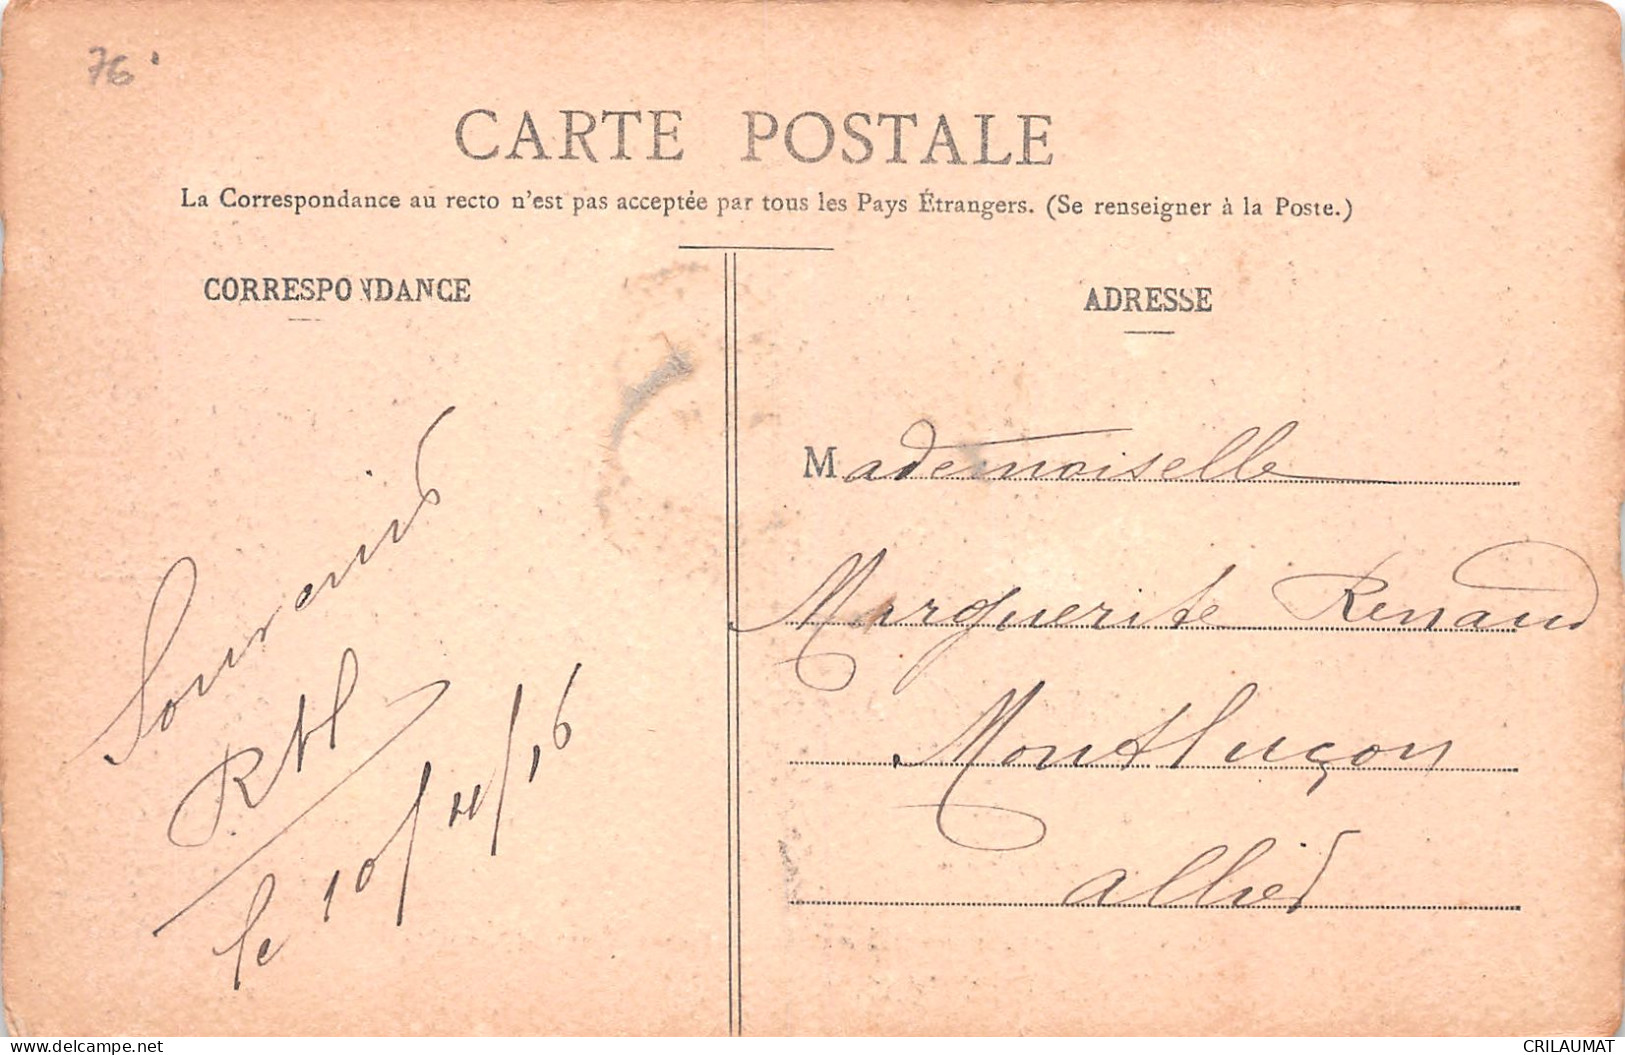 76
CARTE POSTALE
La Correspondance au recto n'est pas acceptée par tous les Pays Étrangers. (Se renseigner à la Poste.)
CORRESPONDANCE
ADRESSE
Souvenirs
le 10/11/16
Mademoiselle
Marguerite Renaud
Montluçon
Allier
CRILAUMAT